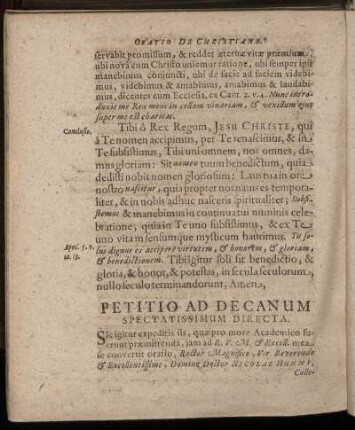 ORATIO DE CHRISTIANO.
servabit promissum, & reddet æternæ vitæ præmium,
ubi novâ cum Christo uniemur ratione, ubi semper ipsi
manebimus conjuncti, ubi de facie ad faciem videbi-
mus, videbimus & amabimus, amabimus & laudabi-
mus, dicentes cum Ecclesia, ex Cant. 2. v. 4. Nunc intro-
duxit me Rex meus in cellam vinariam, & vexillum ejus
super me est charitas.
Conclusio.
Tibi ô Rex Regum, JESU CHRISTE, qui
à Te nomen accipimus, per Te renascimur, & in
Te subsistimus, Tibi uni omnem, nos omnes, da-
mus gloriam: Sit nomen tuum benedictum, quia
dedisti nobis nomen gloriosum: Laus tua in ore
nostro nascitur, quia propter nos natus es tempora-
liter, & in nobis adhuc nasceris spiritualiter; Subsi-
stemus & manebimus in continua tui numinis cele-
bratione, quia in Te uno subsistimus, & ex Te
uno vitam sensumque mysticum haurimus. Tu so-
Apoc. 5. v.
12. 13.
lus dignus es accipere virtutem, & honorem, & gloriam,
& benedictionem. Tibi igitur soli sit benedictio, &
gloria, & honor, & potestas, in secula seculorum,
nullo seculo terminandorum, Amen,
PETITIO AD DECANUM
SPECTATISSIMUM DIRECTA.
Sic igitur expeditis iis, quæ pro more Academico fu-
erunt præmittenda, jam ad R. V. M. & Excell. mea
se convertit oratio, Rector Magnifice, Vir Reverende
& Excellentissime, Domine Doctor NICOLAE HUNNI,
Code-